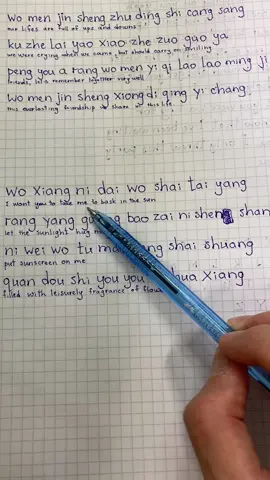 wo men jin sheng zhu ding shi cang sang
our lifes are full of ups and downs
ku zhe lai yao xiao zhe zuo guo ya
we were crying when we came, but should carry on smiling
peng you a rang wo men yi qi lao lao ming ji
friends, let's remember together very well
wo men jin sheng xiong di qing yi chang
this everlasting friendship we share in this life
wo xiang ni dai wo shai tai yang
I want you to take me to bask in the sun
rang yang bao zai ni sheng shan
let the sunlight hug
ni wei wo tu shuang
put sunscreen on me
quan dou shi you you hua xiang
filled with leisurely fragrance of